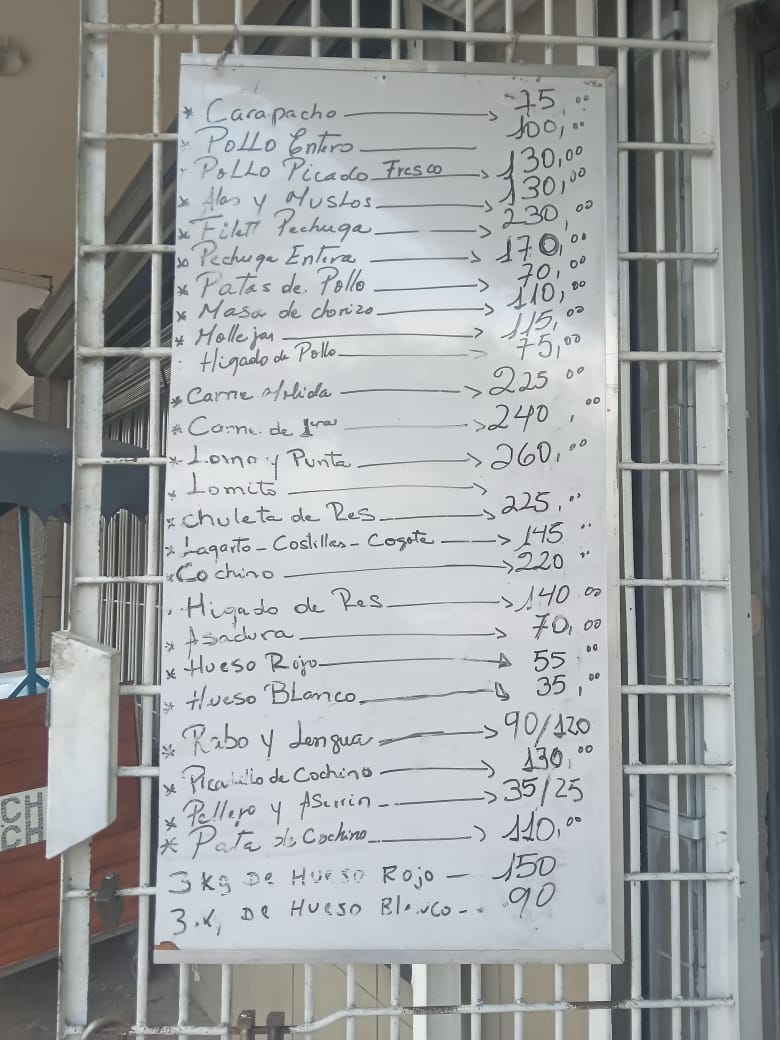 * Carapacho → 75,00
* Pollo Entero — 100,00
- Pollo Picado Fresco → 130,00
* Alas y Muslos → 130,00
* Filett Pechuga → 230,00
* Pechuga Entera → 170,00
* Patas de Pollo → 70,00
* Masa de chorizo → 110,00
* Mollejas → 115,00
: Higado de Pollo → 75,00
* Carne Molida → 225 00
* Carne de 1era → 240,00
* Lomo y Punta → 260,00
* Lomito →
* Chuleta de Res → 225,00
* Lagarto - Costillas - Cogote → 145 00
* Cochino → 220 00
. Higado de Res → 140 00
* Asadura → 70,00
* Hueso Rojo → 55 00
* Hueso Blanco → 35,00
* Rabo y Lengua → 90/120
* Picadillo de Cochino → 130,00
* Pellejo y Aserrin → 35/25
* Pata de Cochino → 110,00
3 Kg De Hueso Rojo — 150
3.K, De Hueso Blanco -. 90
CH
CH